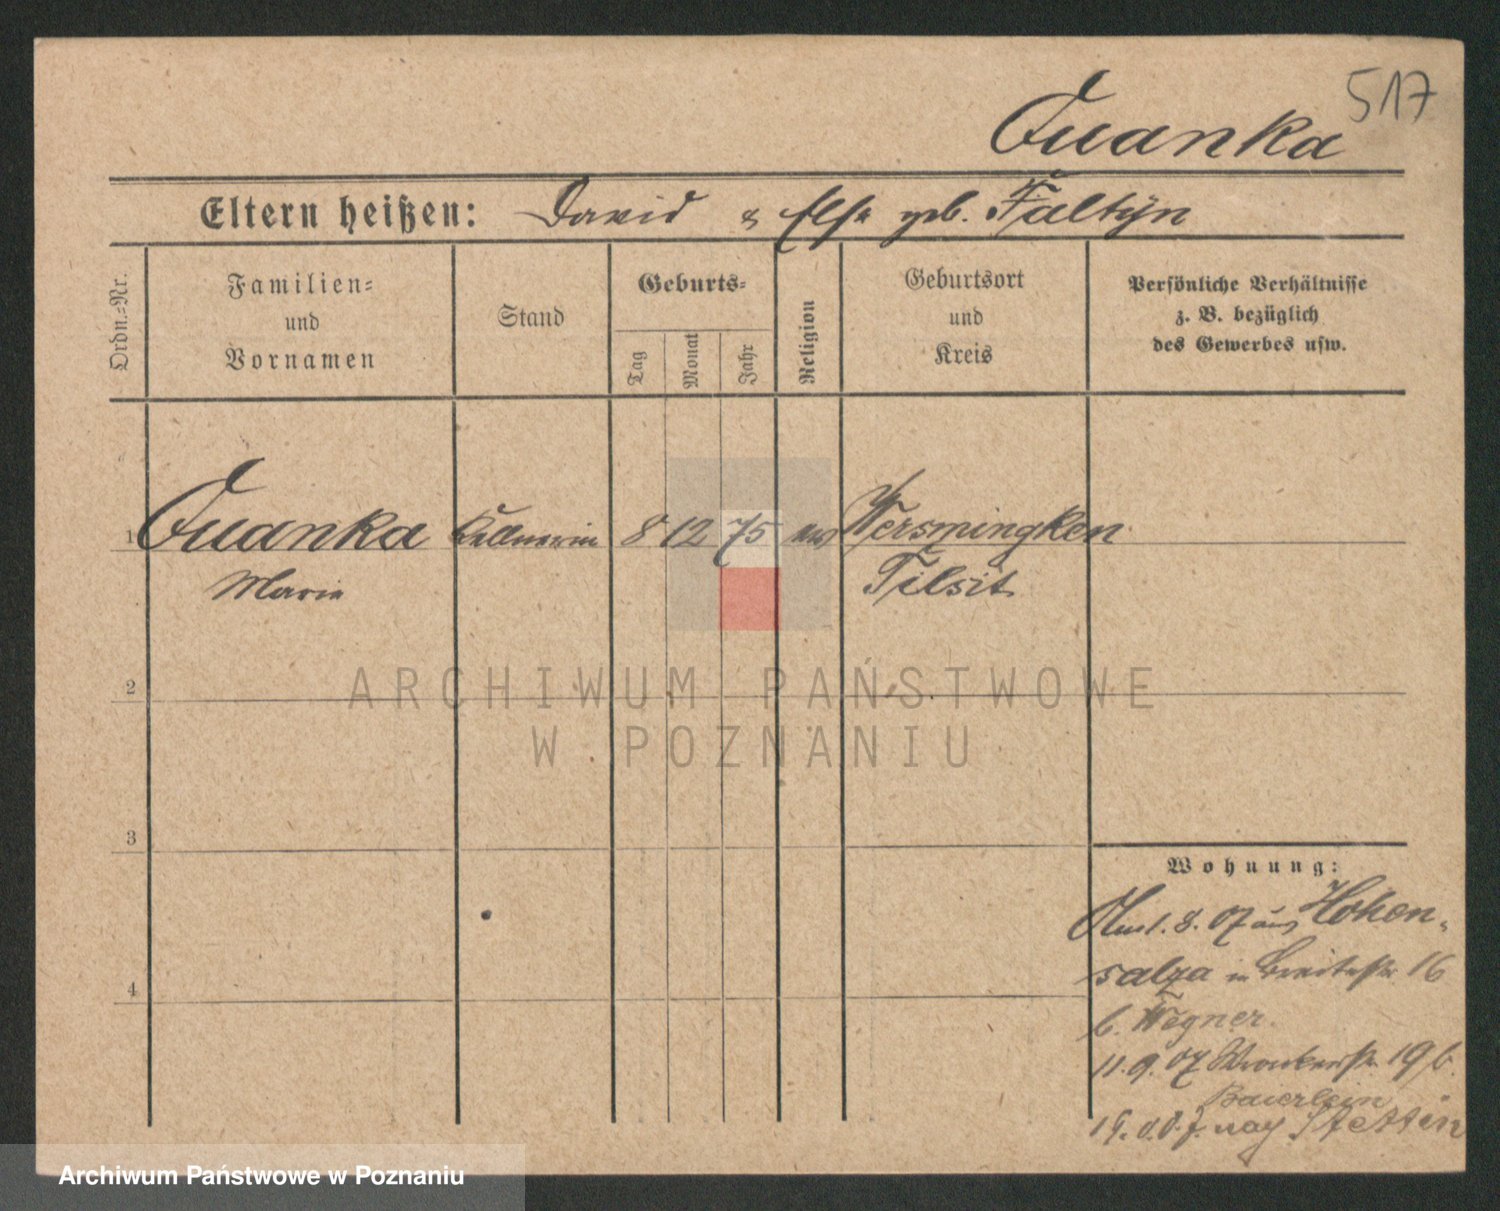 517
Quanka
Eltern heißen: David & Else geb. Faltijn
Ordn.=Nr.
Familien=
und
Vornamen
Stand
Geburts=
Tag
Monat
Jahr
Religion
Geburtsort
und
Kreis
Persönliche Verhältnisse
z. B. bezüglich
des Gewerbes usw.
1 Quanka Kellnerin 8 12 75 ev Wersmingken
Marie Tilsit
2
ARCHIWUM PAŃSTWOWE
W POZNANIU
3
4
Wohnung:
1. 8. 07 aus Hohen-
salza in Breitestr 16
b. Wegner.
11. 9. 07 Wronkerstr 19 b.
Baierlein
19. d. J. nach Stettin
Archiwum Państwowe w Poznaniu